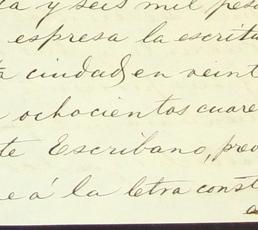 ta y seis mil pes
espresa la escritu
ta ciudad, en veint
ochocientos cuare
te Escribano, prev
e á la letra const
a